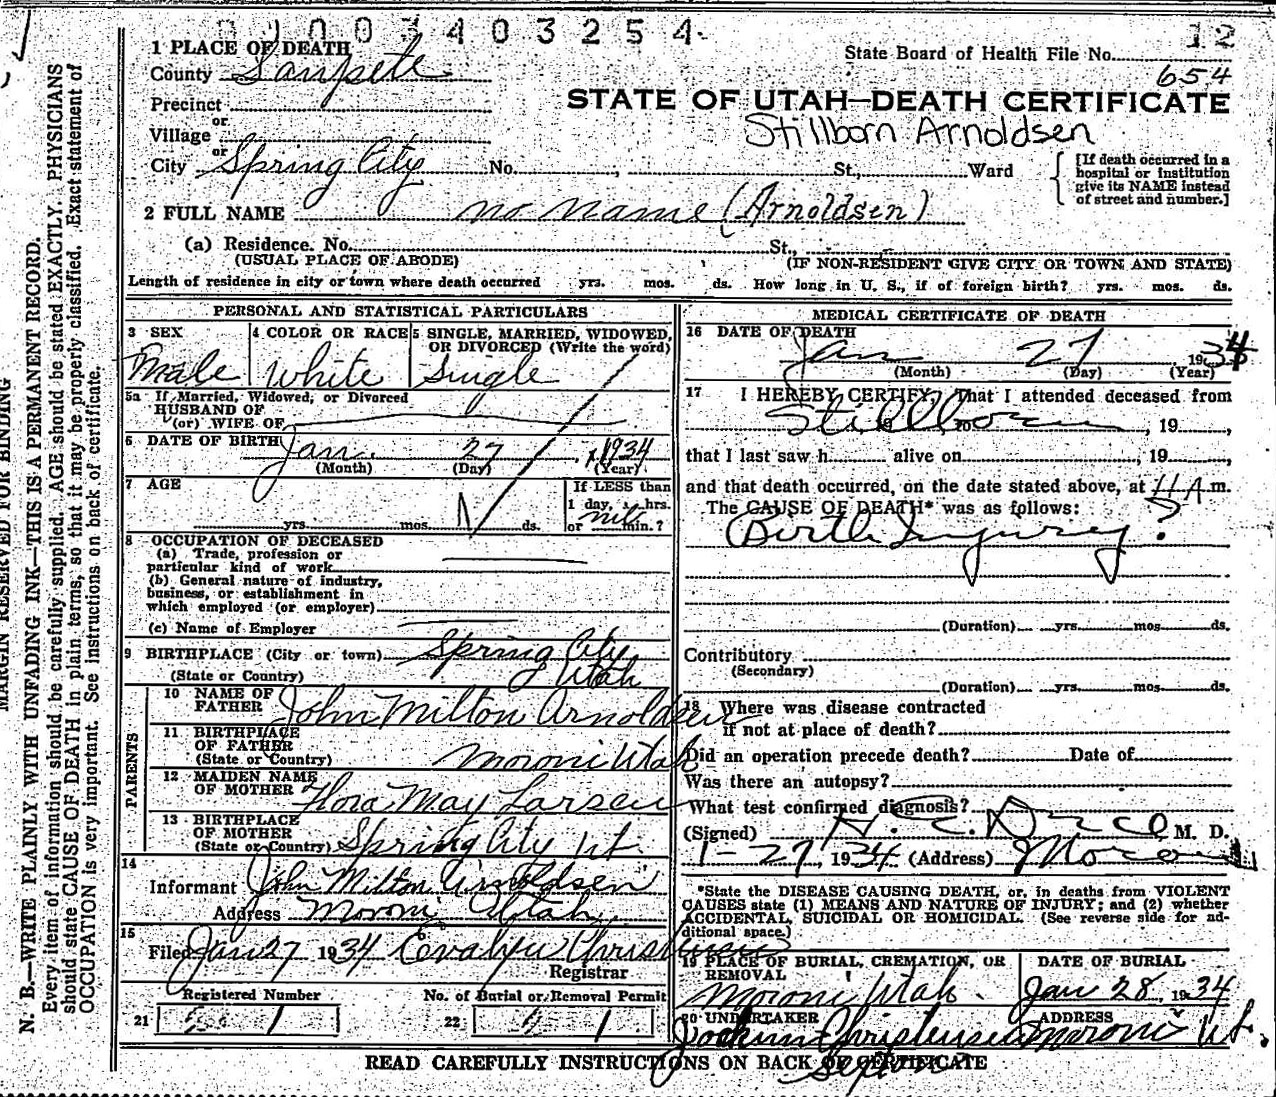 0 1 0 0 3 4 0 3 2 5 4
12
State Board of Health File No.
654
1 PLACE OF DEATH
County Sanpete
STATE OF UTAH—DEATH CERTIFICATE
Stillborn Arnoldsen
Precinct
or
Village
or
City Spring City No. , St., Ward
[If death occurred in a
hospital or institution
give its NAME instead
of street and number.]
2 FULL NAME no name (Arnoldsen)
(a) Residence. No. St.,
(USUAL PLACE OF ABODE) (IF NON-RESIDENT GIVE CITY OR TOWN AND STATE)
Length of residence in city or town where death occurred yrs. mos. ds. How long in U. S., if of foreign birth? yrs. mos. ds.
PERSONAL AND STATISTICAL PARTICULARS
3 SEX 4 COLOR OR RACE 5 SINGLE, MARRIED, WIDOWED,
OR DIVORCED (Write the word)
Male White Single
5a If Married, Widowed, or Divorced
HUSBAND OF
(or) WIFE OF
6 DATE OF BIRTH Jan. 27, 1934
(Month) (Day) (Year)
7 AGE If LESS than
1 day, hrs.
yrs. mos. ds. or min.?
8 OCCUPATION OF DECEASED
(a) Trade, profession or
particular kind of work
(b) General nature of industry,
business, or establishment in
which employed (or employer)
(c) Name of Employer
9 BIRTHPLACE (City or town) Spring City
(State or Country) Utah
PARENTS
10 NAME OF
FATHER John Milton Arnoldsen
11 BIRTHPLACE
OF FATHER
(State or Country) Moroni Utah
12 MAIDEN NAME
OF MOTHER Flora May Larsen
13 BIRTHPLACE
OF MOTHER
(State or Country) Spring City Ut.
14
Informant John Milton Arnoldsen
Address Moroni Utah
15
Filed Jan 27 1934 Evalyn Christensen
Registrar
Registered Number No. of Burial or Removal Permit
21 1 22 1
MEDICAL CERTIFICATE OF DEATH
16 DATE OF DEATH
Jan 27 1934
(Month) (Day) (Year)
17 I HEREBY CERTIFY, That I attended deceased from
Stillborn to , 19 ,
that I last saw h alive on , 19 ,
and that death occurred, on the date stated above, at 11 A m.
The CAUSE OF DEATH* was as follows:
Birth Injury ?
(Duration) yrs. mos. ds.
Contributory
(Secondary)
(Duration) yrs. mos. ds.
18 Where was disease contracted
if not at place of death?
Did an operation precede death? Date of
Was there an autopsy?
What test confirmed diagnosis?
(Signed) M. D.
1-27, 1934 (Address) Moroni
*State the DISEASE CAUSING DEATH, or, in deaths from VIOLENT
CAUSES state (1) MEANS AND NATURE OF INJURY; and (2) whether
ACCIDENTAL, SUICIDAL OR HOMICIDAL. (See reverse side for ad-
ditional space.)
19 PLACE OF BURIAL, CREMATION, OR
REMOVAL
DATE OF BURIAL
Moroni Utah. Jan 28, 1934
20 UNDERTAKER ADDRESS
Christensen Moroni Ut.
Sexton
READ CAREFULLY INSTRUCTIONS ON BACK OF CERTIFICATE
MARGIN RESERVED FOR BINDING
N. B.—WRITE PLAINLY WITH UNFADING INK—THIS IS A PERMANENT RECORD.
Every item of information should be carefully supplied. AGE should be stated EXACTLY. PHYSICIANS
should state CAUSE OF DEATH in plain terms, so that it may be properly classified. Exact statement of
OCCUPATION is very important. See instructions on back of certificate.